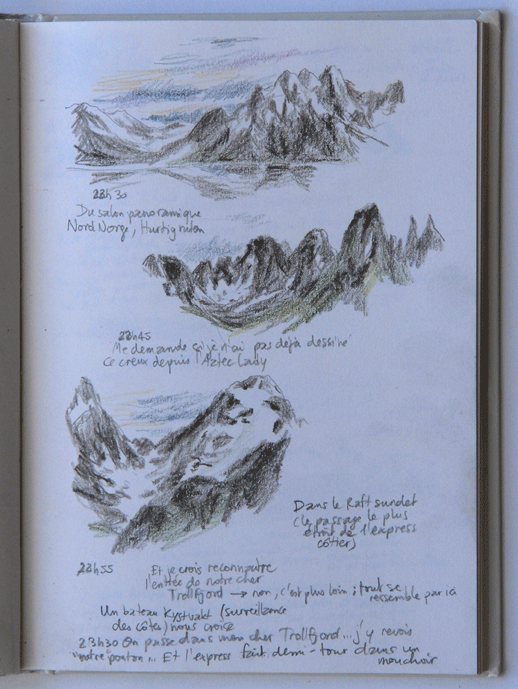 22h30
Du salon panoramique
Nord Norge, Hurtigruten
22h45
Me demande si je n'ai pas déjà dessiné
ce creux depuis l'Aztec Lady
Dans le Raftsundet
(le passage le plus
étroit de l'express
côtier)
22h55
Et je crois reconnaître
l'entrée de notre cher
Trollfjord → non, c'est plus loin; tout se
ressemble par ici
Un bateau Kystvakt (surveillance
des côtes) nous croise
23h30 On passe dans mon cher Trollfjord... j'y revois
"notre ponton"... Et l'express fait demi-tour dans un
mouchoir